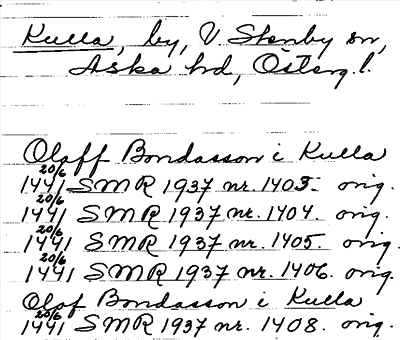 Kulla, by, V Stenby sn,
Aska hd, Österg. l.
Olaff Bondasson i Kulla
20/6 1441 SMR 1937 nr. 1403. orig.
20/6 1441 SMR 1937 nr. 1404. orig.
20/6 1441 SMR 1937 nr. 1405. orig.
20/6 1441 SMR 1937 nr. 1406. orig.
Olof Bondasson i Kulla
20/6 1441 SMR 1937 nr. 1408. orig.